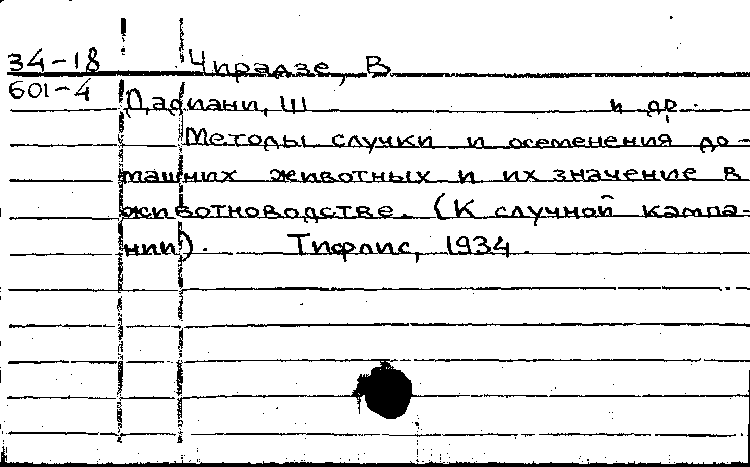 34-18 Чирадзе, В
601-4 Дадиани, Ш и др.
Методы случки и осеменения до-
машних животных и их значение в
животноводстве. (К случной кампа-
нии). Тифлис, 1934